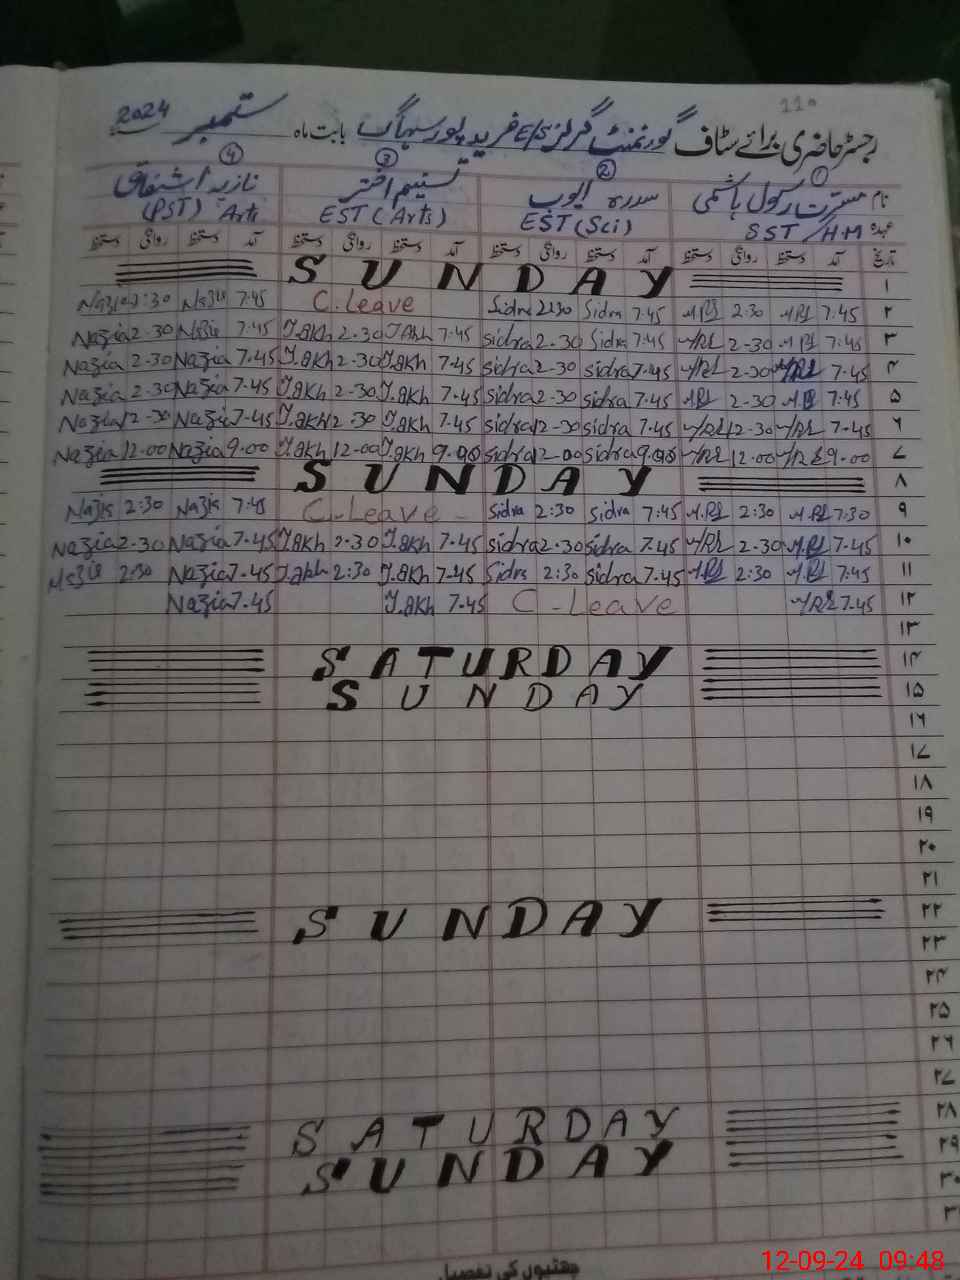 110
رجسٹر حاضری برائے سٹاف گورنمنٹ گرلز E/S فرید پور سہاگ بابت ماہ ستمبر 2024
نام ① مسرت رسول ہاشمی ② سدرہ ایوب ③ تسنیم اختر ④ نازیہ اشفاق
عہدہ SST/H.M EST (Sci) EST (Arts) (PST) Arts
تاریخ آمد دستخط روانگی دستخط آمد دستخط روانگی دستخط آمد دستخط روانگی دستخط آمد دستخط روانگی دستخط
۱ SUNDAY
۲ 7.45 2:30 7.45 Sidra 2:30 Sidra C.Leave 7.45 2:30
۳ 7.45 2-30 7.45 Sidra 2-30 Sidra 7.45 T.akh 2-30 T.akh 7.45 2-30 Nazia
۴ 7.45 2-30 7.45 Sidra 2-30 Sidra 7.45 T.akh 2-30 T.akh 7.45 Nazia 2-30 Nazia
۵ 7.45 2-30 7.45 Sidra 2-30 Sidra 7.45 T.akh 2-30 T.akh 7.45 Nazia 2-30 Nazia
۶ 7.45 12-30 7.45 Sidra 12-30 Sidra 7.45 T.akh 12-30 T.akh 7.45 Nazia 12-30 Nazia
۷ 9.00 12.00 9.00 Sidra 12.00 Sidra 9.00 T.akh 12.00 T.akh 9.00 Nazia 12.00 Nazia
۸ SUNDAY
۹ 7:30 2:30 7.45 Sidra 2:30 Sidra C.Leave 7.45 2:30
۱۰ 7.45 2-30 7.45 Sidra 2-30 Sidra 7.45 T.akh 2-30 T.akh 7.45 Nazia 2-30 Nazia
۱۱ 7:45 2:30 7.45 Sidra 2:30 Sidra 7.45 T.akh 2:30 T.akh 7.45 Nazia 2:30
۱۲ 7.45 C-Leave 7.45 T.akh 7.45 Nazia
۱۳
۱۴ SATURDAY
۱۵ SUNDAY
۱۶
۱۷
۱۸
۱۹
۲۰
۲۱
۲۲ SUNDAY
۲۳
۲۴
۲۵
۲۶
۲۷
۲۸ SATURDAY
۲۹ SUNDAY
۳۰
۳۱
چھٹیوں کی تفصیل
12-09-24 09:48